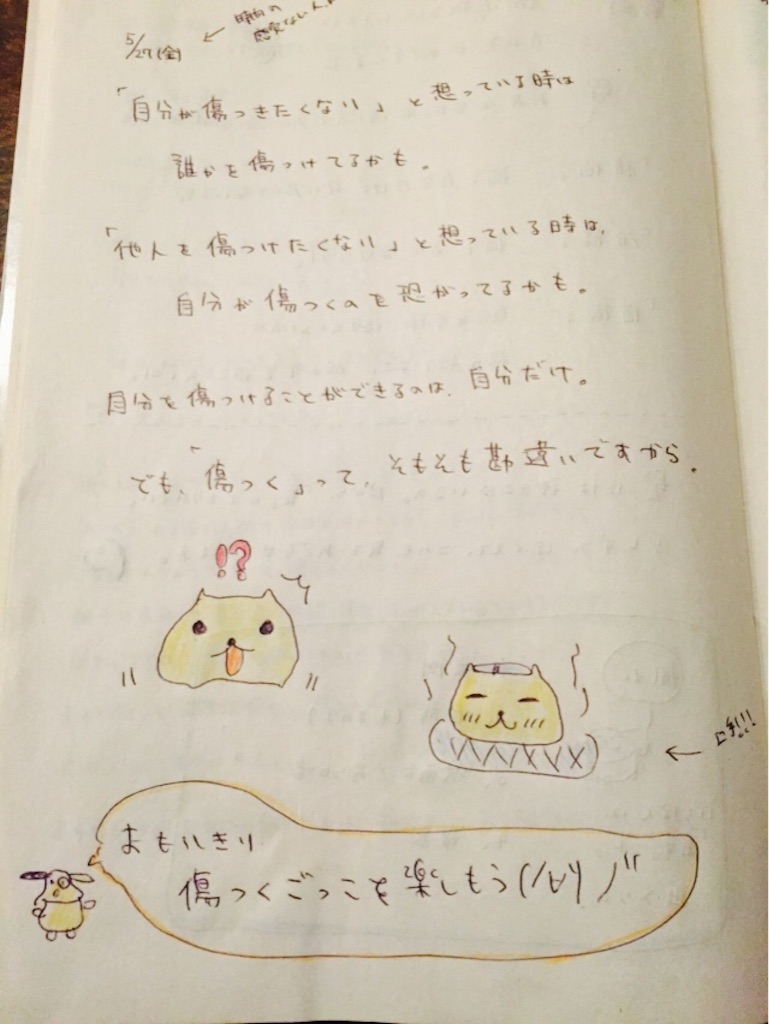 5/27(金) ← 時間の
感覚ない人
「自分が傷つきたくない」と想っている時は
誰かを傷つけてるかも。
「他人を傷つけたくない」と想っている時は、
自分が傷つくのを恐がってるかも。
自分を傷つけることができるのは、自分だけ。
でも、「傷つく」って、そもそも勘違いですから。
!?
←
!!!
おもいきり
傷つくごっこを楽しもう(/∀\)ノ"